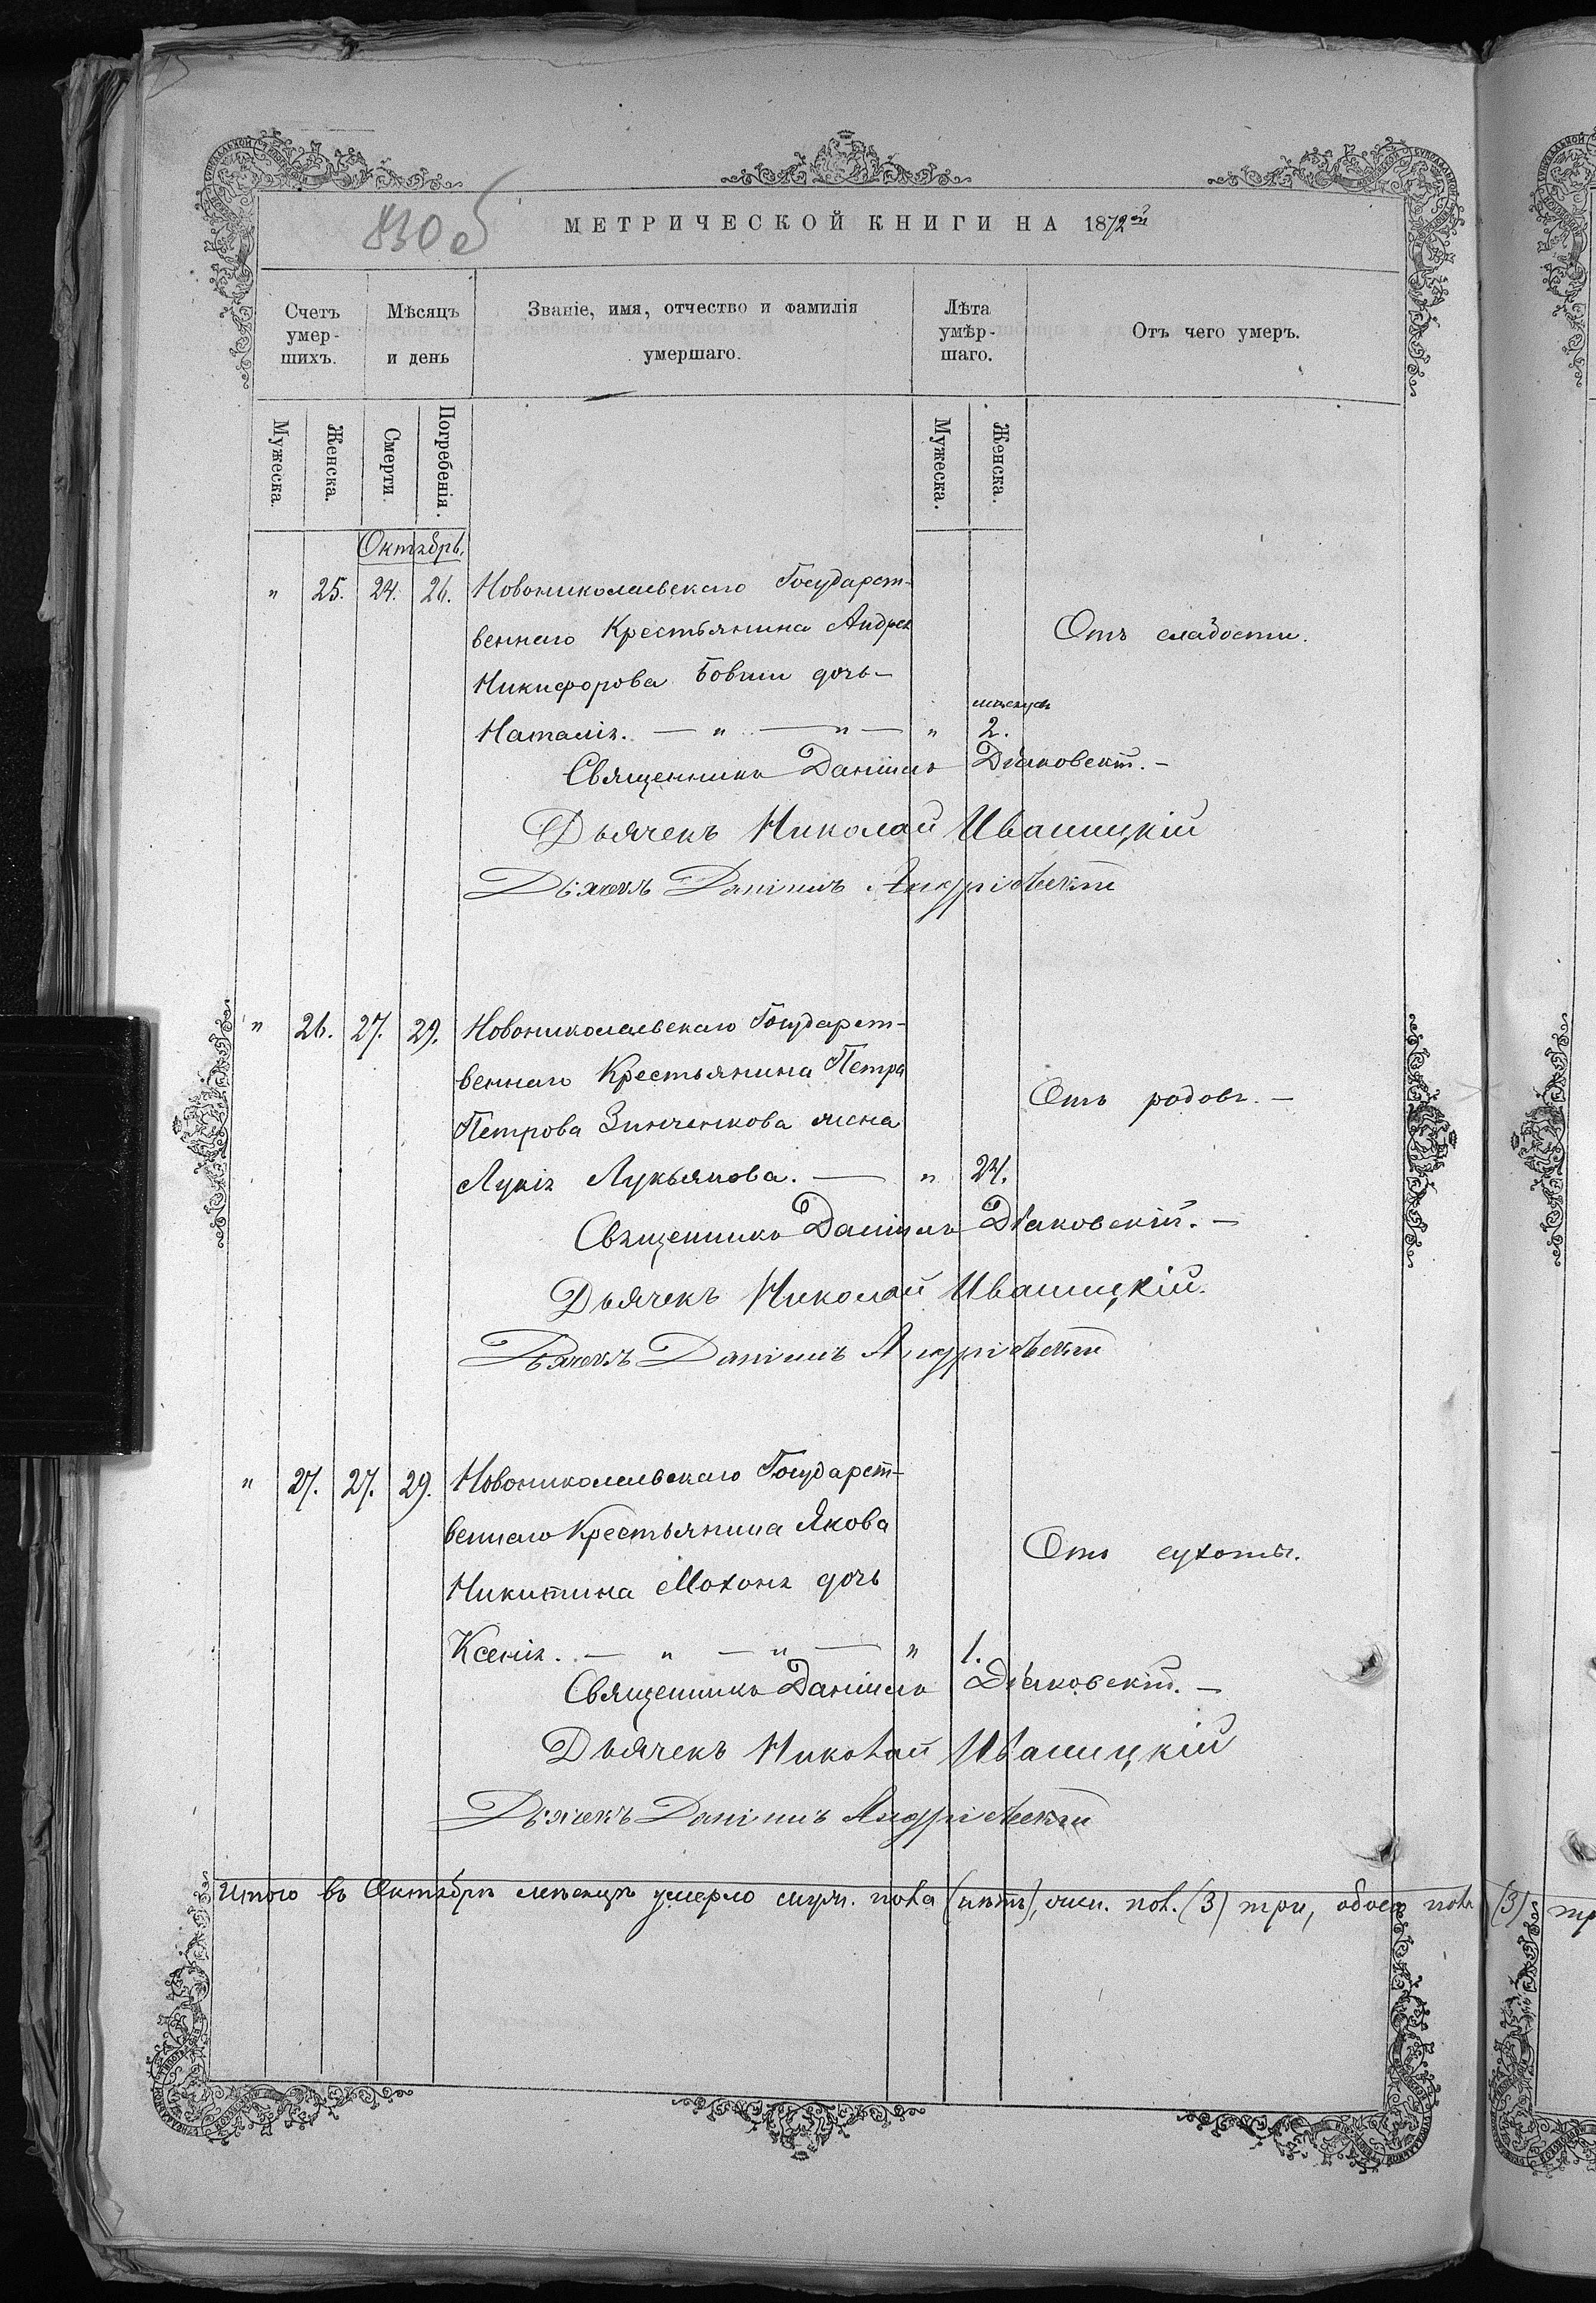 830об
МЕТРИЧЕСКОЙ КНИГИ НА 1872ой
Счетъ умер-шихъ.
Мѣсяцъ и день
Званіе, имя, отчество и фамилія умершаго.
Лѣта умѣр-шаго.
Отъ чего умеръ.
Мужеска.
Женска.
Смерти.
Погребенія.
Мужеска.
Женска.
Октябрь.
" 25. 24. 26. Новониколаевскаго Государст-
веннаго Крестьянина Андрея
Отъ слабости.
Никифорова дочь –
мѣсяцъ
Наталія. — " — " — " 2.
Священникъ Даніилъ Дѣаковскій. –
Дьячекъ Николай Ивашицкій
Дьячекъ Даніилъ Андріевскій
" 26. 27. 29. Новониколаевскаго Государст-
веннаго Крестьянина Петра
Отъ родовъ. –
Петрова Зинченкова жена
Лукія Лукьянова. — " 24.
Священникъ Даніилъ Дѣаковскій. –
Дьячекъ Николай Ивашицкій.
Дьячекъ Даніилъ Андріевскій
" 27. 27. 29. Новониколаевскаго Государст-
веннаго Крестьянина Якова
Отъ сухоты.
Никитина Мохоня дочь
Ксенія. — " — " — " 1.
Священникъ Даніилъ Дѣаковскій. –
Дьячекъ Николай Ивашицкій
Дьячекъ Даніилъ Андріевскій
Итого въ Октябрѣ мѣсяцѣ умерло муж. пола (нѣтъ), жен. пол. (3) три, обоего пола (3) тр